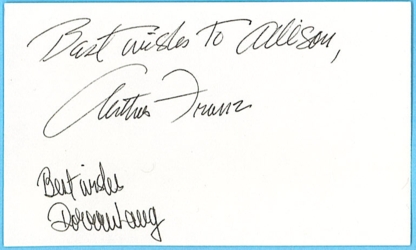 Best wishes To Allison,
Arthur Franz
Best wishes
Doreen Lang